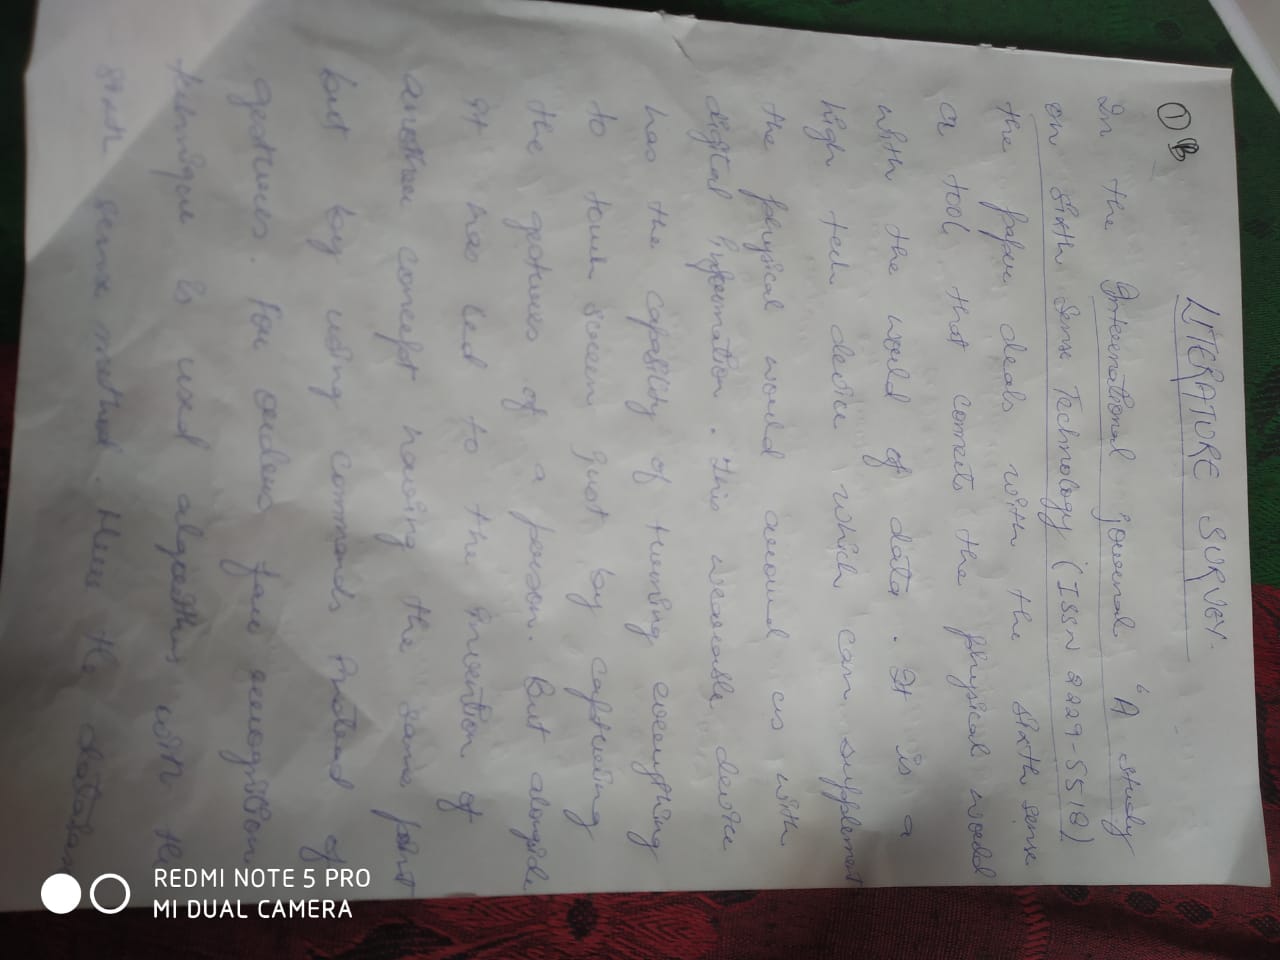 ① B
LITERATURE SURVEY.
In the International journal 'A study
on Sixth Sense Technology (ISSN 2229-5518)
the paper deals with the sixth sense
a tool that connects the physical world
with the world of data. It is a
high tech device which can supplement
the physical world around us with
digital information. This wearable device
has the capability of turning everything
to touch screen just by capturing
the gestures of a person. But alongside
it has led to the invention of
another concept having the same point
but by using commands instead of
gestures. For orders face recognition
technique is used algorithms with the
sixth sense method. Here the database
REDMI NOTE 5 PRO
MI DUAL CAMERA